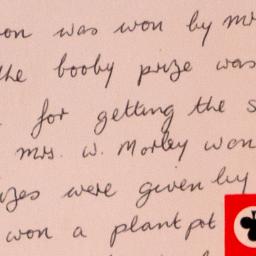 on was won by mr
the booby prize was
for getting the s
mrs. W. Morley won
izes were given by
won a plant pot